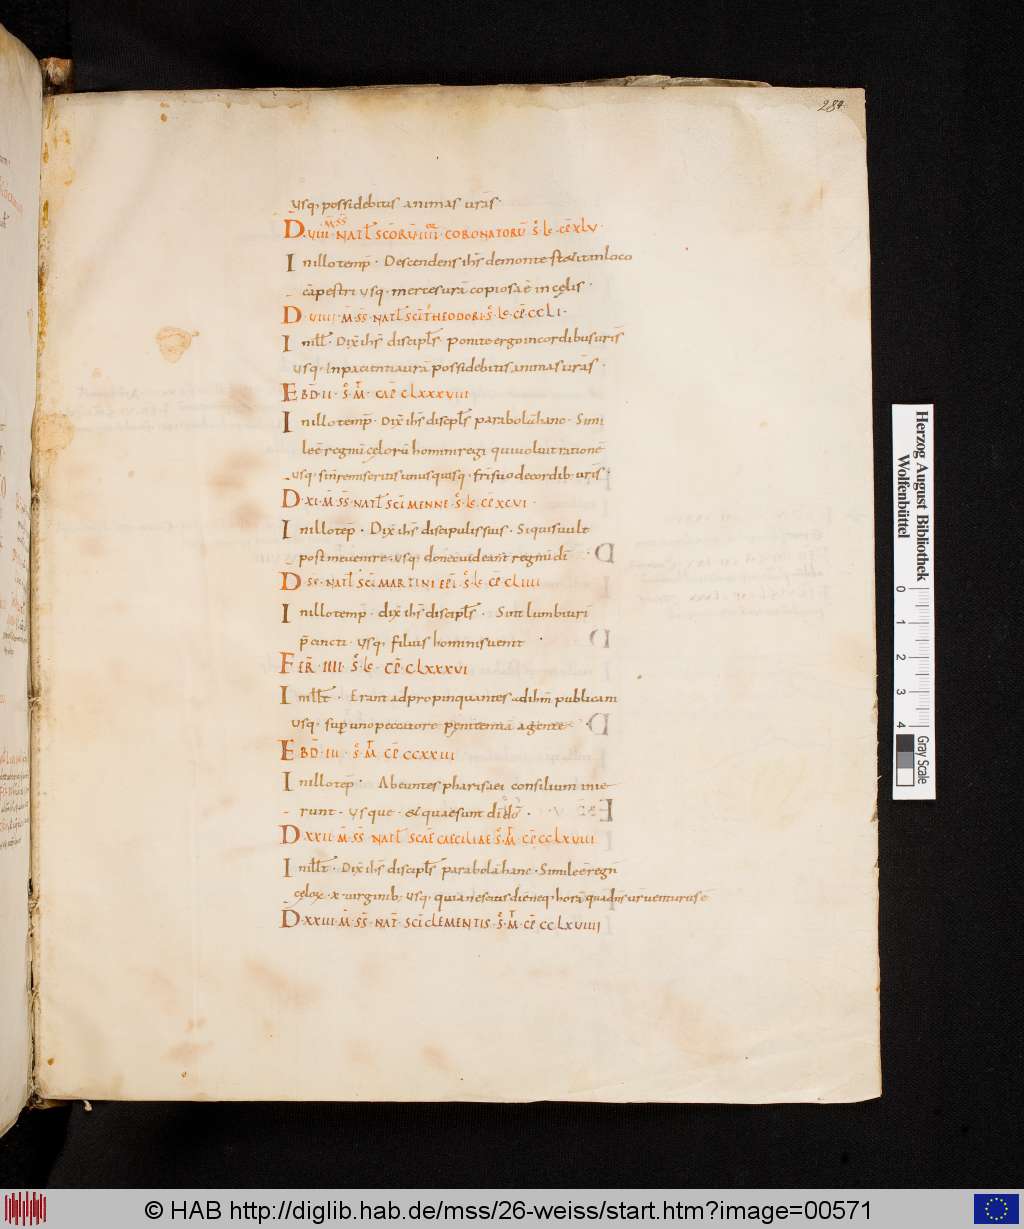 284
usq; possidebitis animas urãs
D. VIII. M̃ SS̃ NATL̃ SCÕRŨ IIII CORONATORŨ S̃ Lc CP̃ XLV
In illo temp̃. Descendens ih̃s de monte stetit in loco
cãpestri usq. merces urã copiosa ẽ in cęlis
D. VIIII. M̃ SS̃ NATL̃ SCĨ THEODORI S̃ Lc CP̃ CCLI
In illt̃. Dix̃ ih̃s discipl̃s ponite ergo in cordibus uris̃
usq. In pacientia urã possidebitis animas urãs
EBD̃ II S̃ M̃ CAP̃ CLXXXVIII
In illo temp̃. Dix̃ ih̃s discipl̃s parabolã hanc. Simi
le ẽ regnũ cęlorũ homini regi qui uoluit rationẽ
usq. si ñ remiseritis unusquisq. fr̃i suo de cordib. uris̃
D. XI. M̃ SS̃ NATL̃ SCĨ MENNE S̃ Lc CP̃ XCVI
In illo tep̃. Dix̃ ih̃s discipulis suis. Si quis uult
post me uenire. usq. donec uideant̃ regnũ dĩ
D SS̃ NATL̃ SCĨ MARTINI EP̃I S̃ Lc CP̃ CLIIII
In illo temp̃. dix̃ ih̃s discipl̃s. Sint lumbi uri
p̃cincti. usq. filius hominis uenit
FER̃ IIII S̃ Lc CP̃ CLXXXVI
In illt̃. Erant adpropinquantes ad ihm̃ publicani
usq. sup̃ uno peccatore pęnitentiã agente
EBD̃ III S̃ M̃ CP̃ CCXXIII
In illo tep̃. Abeuntes pharisaei consilium inie
runt. usque. & quae sunt dĩ dõ
D XXII M̃ SS̃ NATL̃ SCAẼ CAECILIAE S̃ M̃ CP̃ CCLXVIII
In illt̃. Dix̃ ih̃s discipl̃s parabolã hanc. Simile ẽ regñ
cęloꝝ x uirginib; usq. quia nescitis diẽ neq. horã
D XXIII M̃ SS̃ NAT̃ SCĨ CLEMENTIS S̃ M̃ CP̃ CCLXVIIII
Herzog August Bibliothek
Wolfenbüttel
0 1 2 3 4
Gray Scale
© HAB http://diglib.hab.de/mss/26-weiss/start.htm?image=00571